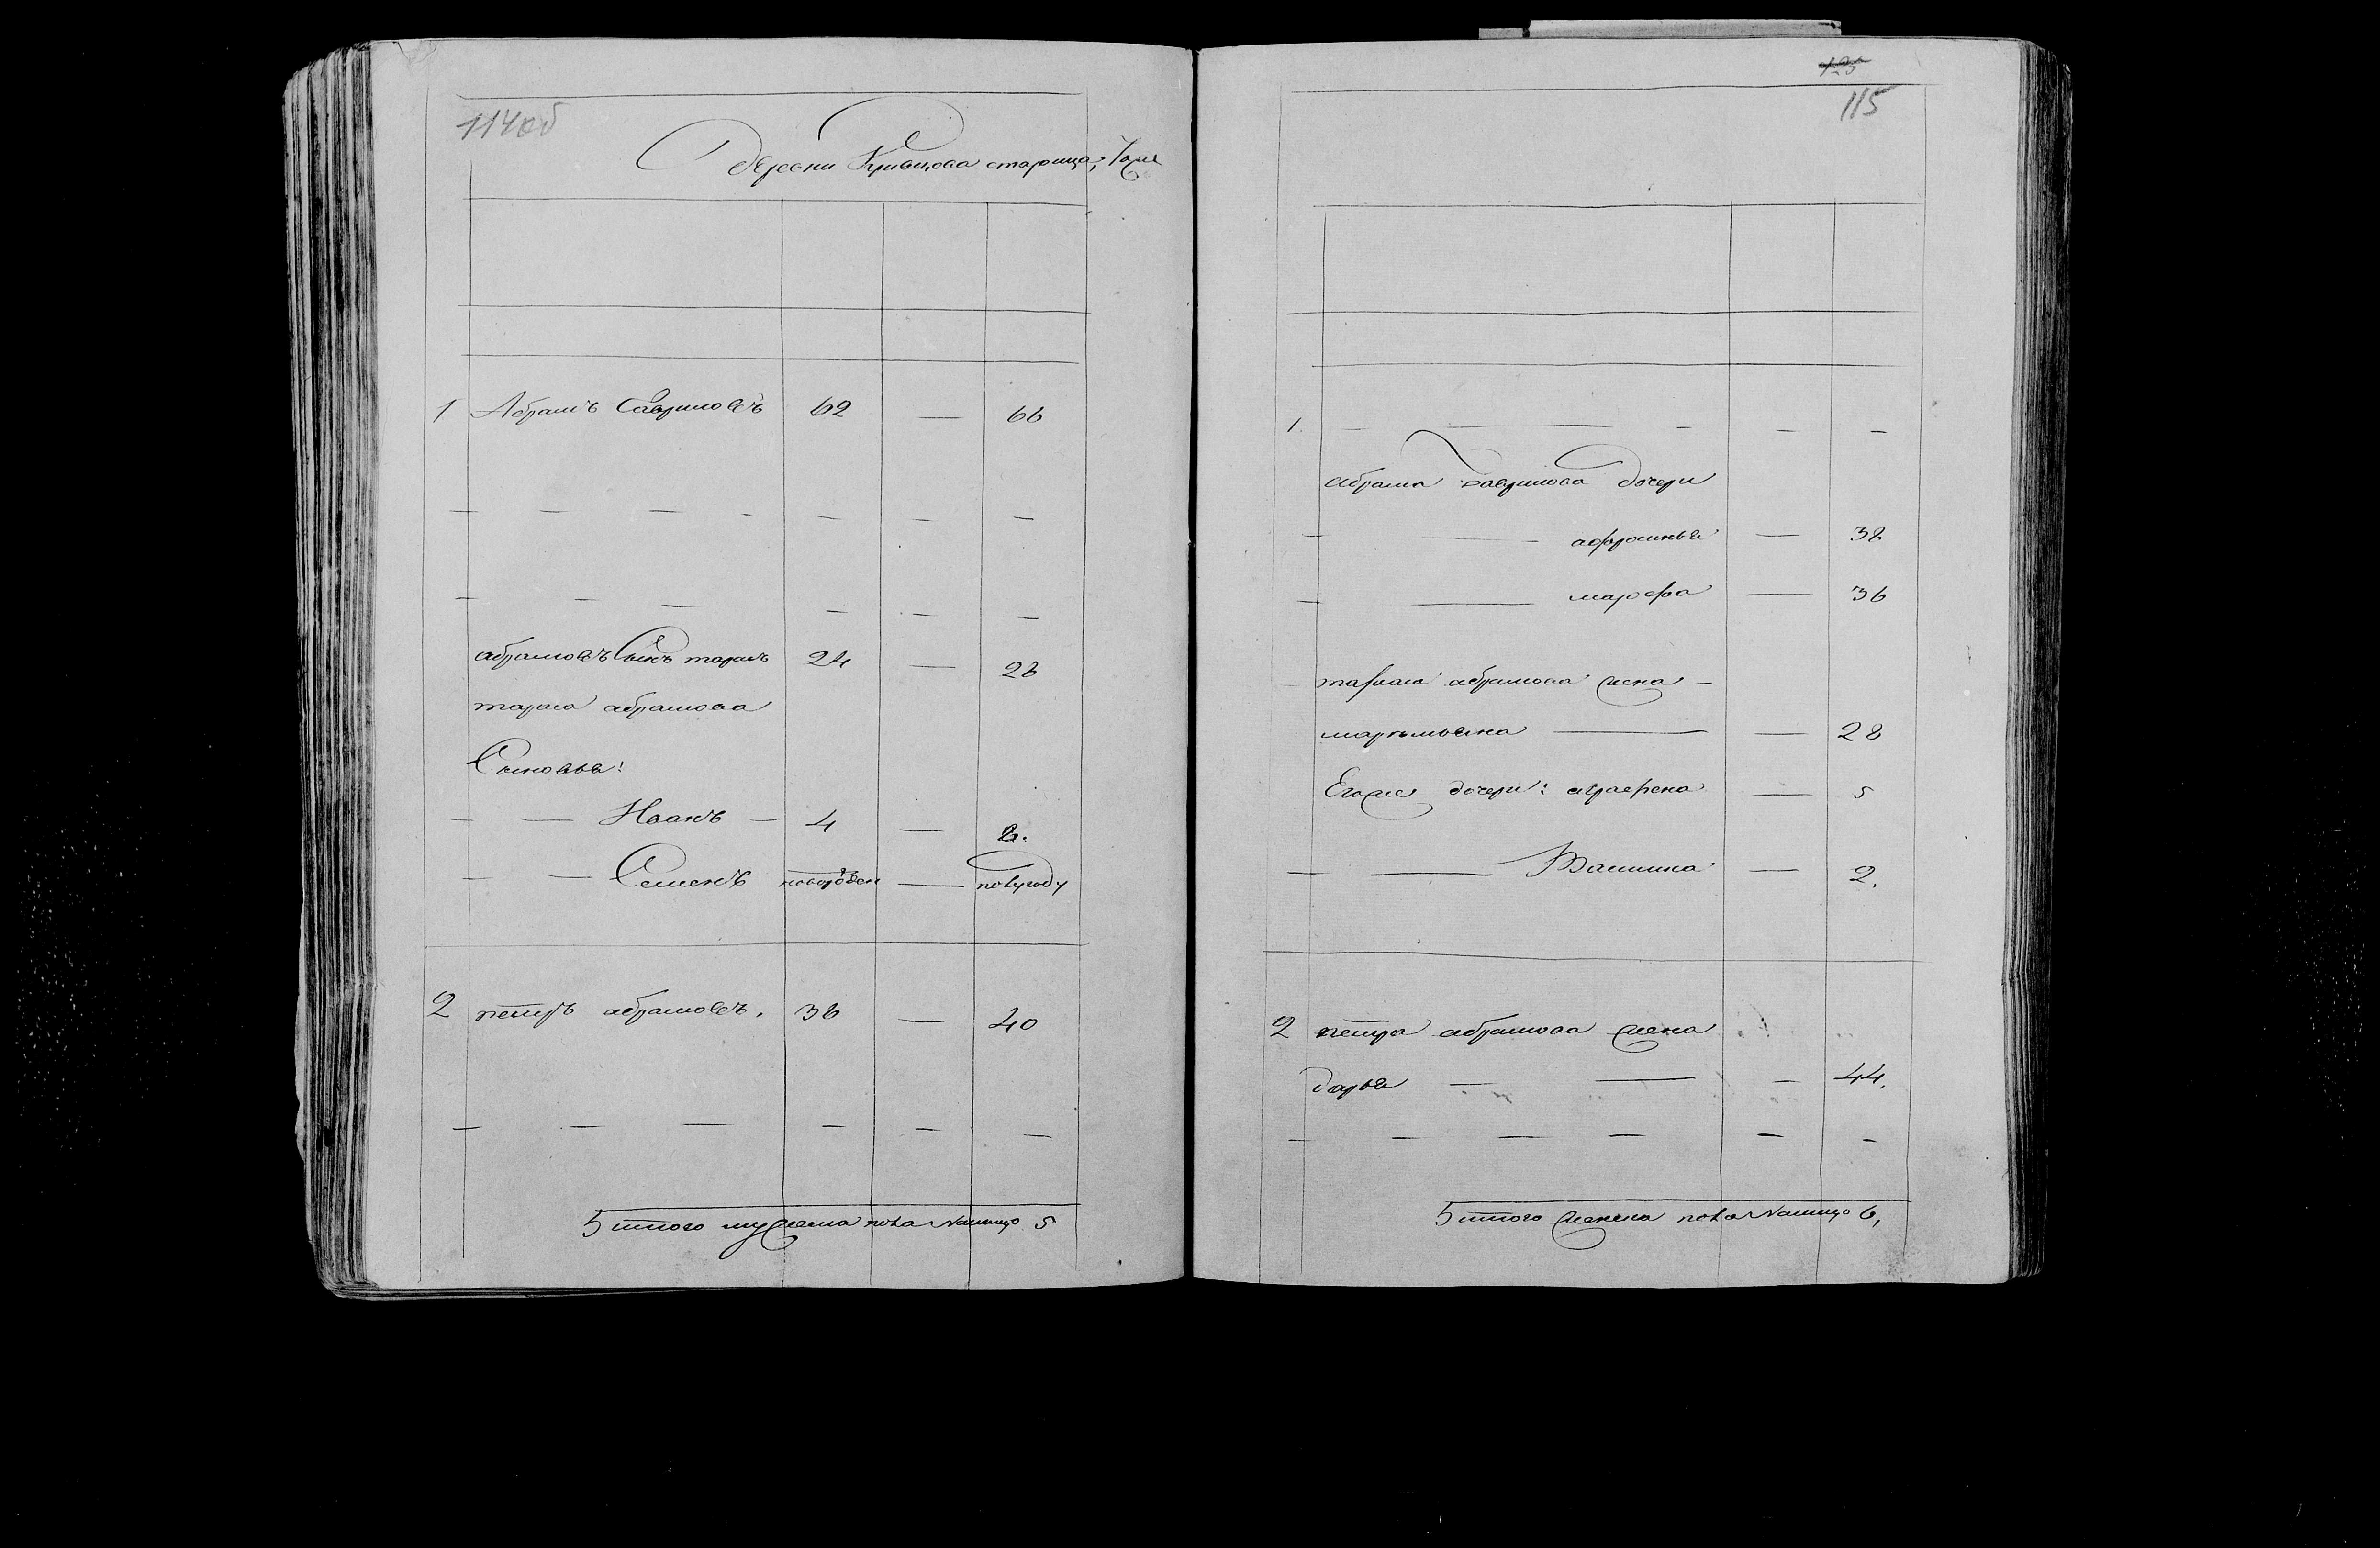 114об
Деревни Кривцова старица, тоже
1 Абрамъ Гавриловъ 62 — 66
— — — — — — —
— — — — — —
абрамовъ Сынъ тарасъ 24 — 28
тараса абрамова
Сыновья:
— — Иванъ — 4 — 8.
— — Семенъ новорожден — полугоду
2 петръ абрамовъ. 36 — 40
— — — — — —
Итого мужеска пола налицо 5
125
115
1. — — — — — —
абрама Гаврилова дочери
— — афросинья — 38
— — марфа — 36
тараса абрамова жена —
маремьяна — — 28
Егоже дочери: аграфена — 5
— — — 2.
2 петра абрамова жена
дарья — — — 44.
— — — — — —
Итого женска пола налицо 6,